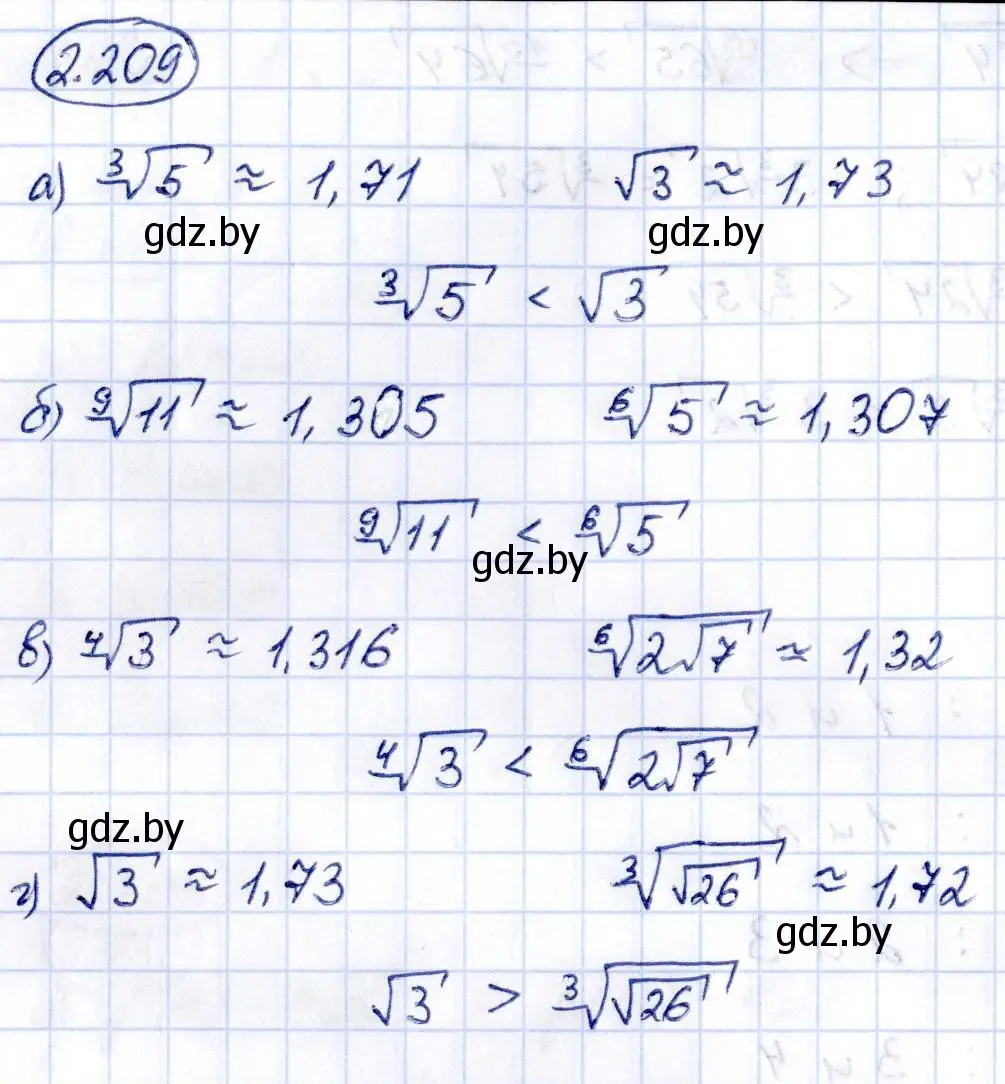 2.209
а) ∛5 ≈ 1,71 √3 ≈ 1,73
gdz.by gdz.by
∛5 < √3
б) ⁹√11 ≈ 1,305 ⁶√5 ≈ 1,307
⁹√11 < ⁶√5
gdz.by
в) ⁴√3 ≈ 1,316 ⁶√(2√7) ≈ 1,32
⁴√3 < ⁶√(2√7)
gdz.by
г) √3 ≈ 1,73 ∛(√26) ≈ 1,72
gdz.by
√3 > ∛(√26)